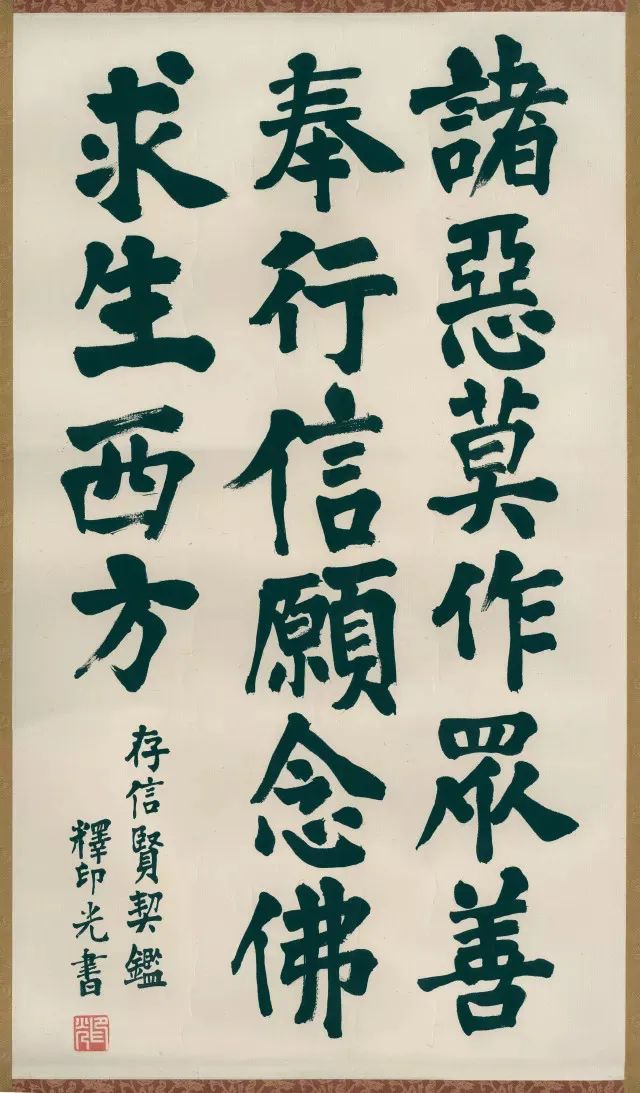 諸惡莫作眾善
奉行信願念佛
求生西方
存信賢契鑑
釋印光書